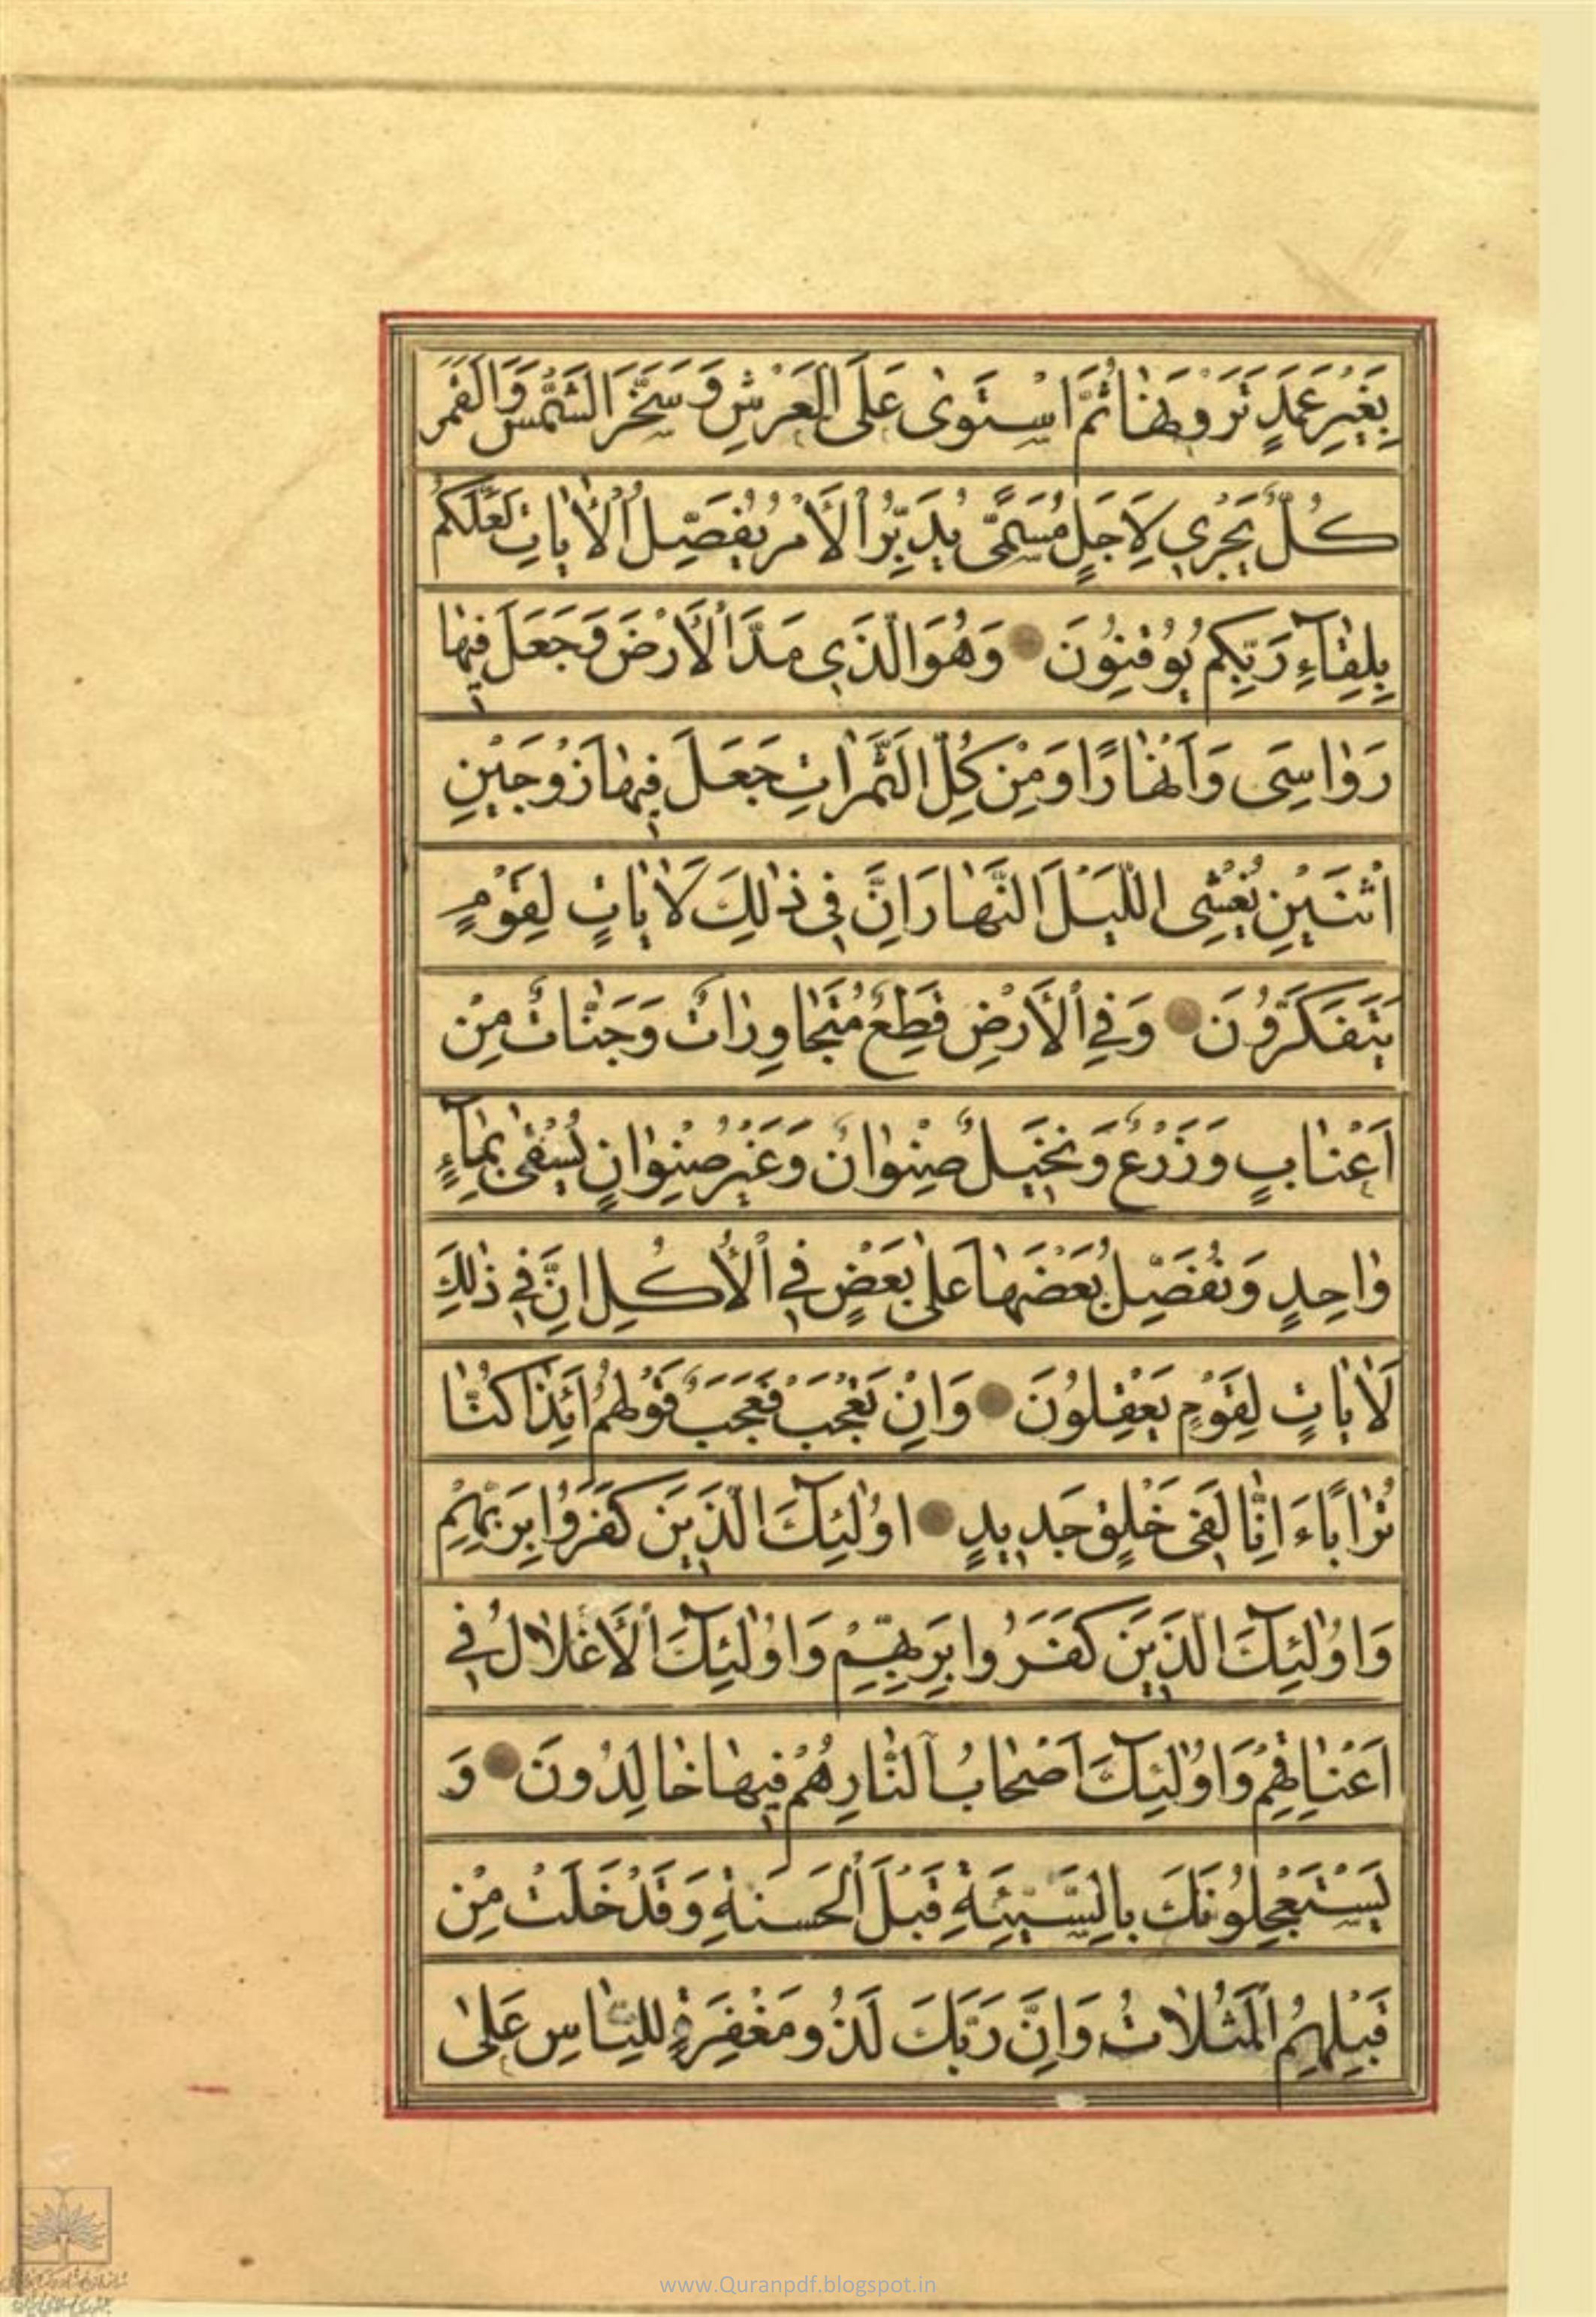 بِغَيْرِ عَمَدٍ تَرَوْنَهٰا ثُمَّ اسْتَوىٰ عَلَى الْعَرْشِ وَسَخَّرَ الشَّمْسَ وَالْقَمَرَ
كُلٌّ يَجْرِي لِاَجَلٍ مُسَمًّى يُدَبِّرُ الْأَمْرَ يُفَصِّلُ الْأٰيٰاتِ لَعَلَّكُمْ
بِلِقٰآءِ رَبِّكُمْ تُوقِنُونَ وَهُوَ الَّذَي مَدَّ الْأَرْضَ وَجَعَلَ فِيهٰا
رَوٰاسِىَ وَاَنْهٰارًا وَمِنْ كُلِّ الثَّمَرٰاتِ جَعَلَ فِيهٰا زَوْجَيْنِ
اثْنَيْنِ يُغْشِى اللَّيْلَ النَّهٰارَ اِنَّ فِي ذٰلِكَ لَاٰيٰاتٍ لِقَوْمٍ
يَتَفَكَّرُونَ وَفِي الْأَرْضِ قِطَعٌ مُتَجٰاوِرٰاتٌ وَجَنّٰاتٌ مِنْ
اَعْنٰابٍ وَزَرْعٌ وَنَخِيلٌ صِنْوٰانٌ وَغَيْرُ صِنْوٰانٍ يُسْقىٰ بِمٰآءٍ
وٰاحِدٍ وَنُفَضِّلُ بَعْضَهٰا عَلىٰ بَعْضٍ فِي الْأُكُلِ اِنَّ فِي ذٰلِكَ
لَاٰيٰاتٍ لِقَوْمٍ يَعْقِلُونَ وَاِنْ تَعْجَبْ فَعَجَبٌ قَوْلُهُمْ اَئِذٰا كُنّٰا
تُرٰابًا ءَاِنّٰا لَفِى خَلْقٍ جَدِيدٍ اوُلٰئِكَ الَّذَينَ كَفَرُوا بِرَبِّهِمْ
وَاوُلٰئِكَ الَّذَينَ كَفَرُوا بِرَبِّهِمْ وَاوُلٰئِكَ الْأَغْلٰالُ فِي
اَعْنٰاقِهِمْ وَاوُلٰئِكَ اَصْحٰابُ النّٰارِ هُمْ فِيهٰا خٰالِدُونَ وَ
يَسْتَعْجِلُونَكَ بِالسَّيِّئَةِ قَبْلَ الْحَسَنَةِ وَقَدْ خَلَتْ مِنْ
قَبْلِهِمُ الْمَثُلٰاتُ وَاِنَّ رَبَّكَ لَذُو مَغْفِرَةٍ لِلنّٰاسِ عَلىٰ
www.Quranpdf.blogspot.in